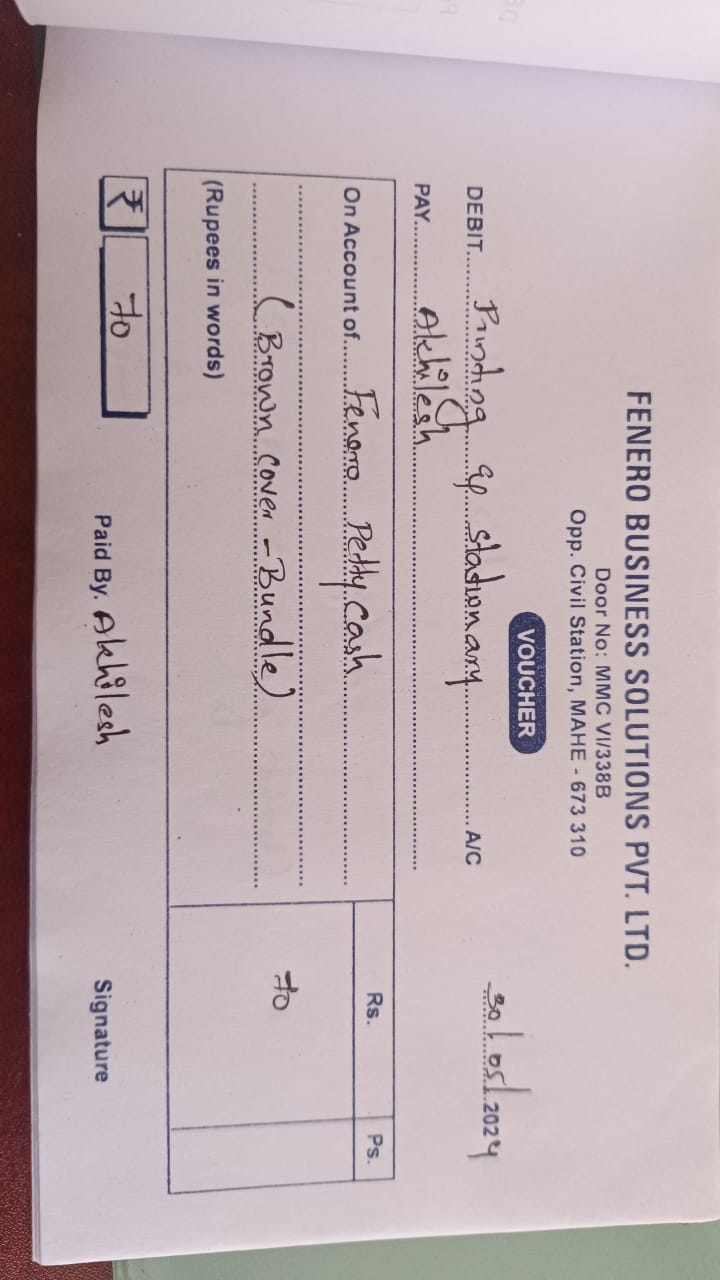 FENERO BUSINESS SOLUTIONS PVT. LTD.
Door No: MMC VI/338B
Opp. Civil Station, MAHE - 673 310
VOUCHER
30/05/2024
DEBIT Printing & Stationary A/C
PAY Akhilesh
Rs. Ps.
On Account of Fenero Petty Cash
(Brown cover - Bundle) 70
(Rupees in words)
₹ 70 Paid By. Akhilesh Signature